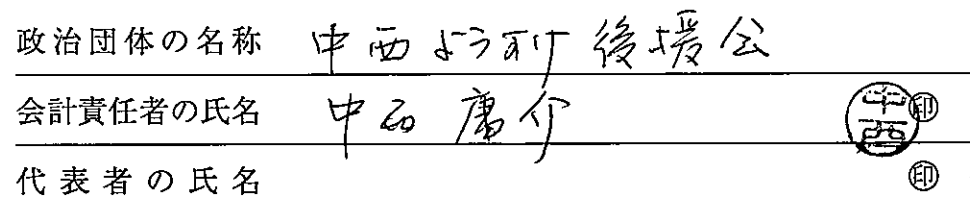 政治団体の名称 中西ようすけ後援会
会計責任者の氏名 中西庸介 中西 ㊞
代表者の氏名 ㊞